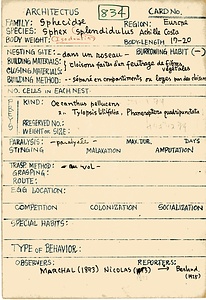 ARCHITECTUS 834 CARD No.
FAMILY: Sphecidae REGION: Europa
SPECIES: Sphex splendidulus Achille Costa
BODY WEIGHT: BODY-LENGTH 17-20
NESTING SITE: - dans un roseau - BURROWING HABIT (-)
BUILDING MATERIALS: cloisons faites d'un feutrage de fibres
CLOSING MATERIALS: végétales
BUILDING METHOD: - séparé en compartiments ou loges par des cloisons
NO. CELLS IN EACH NEST:
PREYS KIND: Oecanthus pellucens
2. Tylopsis liliifolia, Phaneroptera quadripunctata
PRESERVED NO.:
WEIGHT OR SIZE:
PARALYSIS: - paralysie - MAX. DUR. DAYS
STINGING MALAXATION AMPUTATION
TRASP. METHOD: - au vol -
GRASPING:
ROUTE:
EGG LOCATION:
COMPETITION COLONIZATION SOCIALIZATION
SPECIAL HABITS:
TYPE OF BEHAVIOR:
OBSERVERS: REPORTERS:
MARECHAL (1893) NICOLAS → Berland